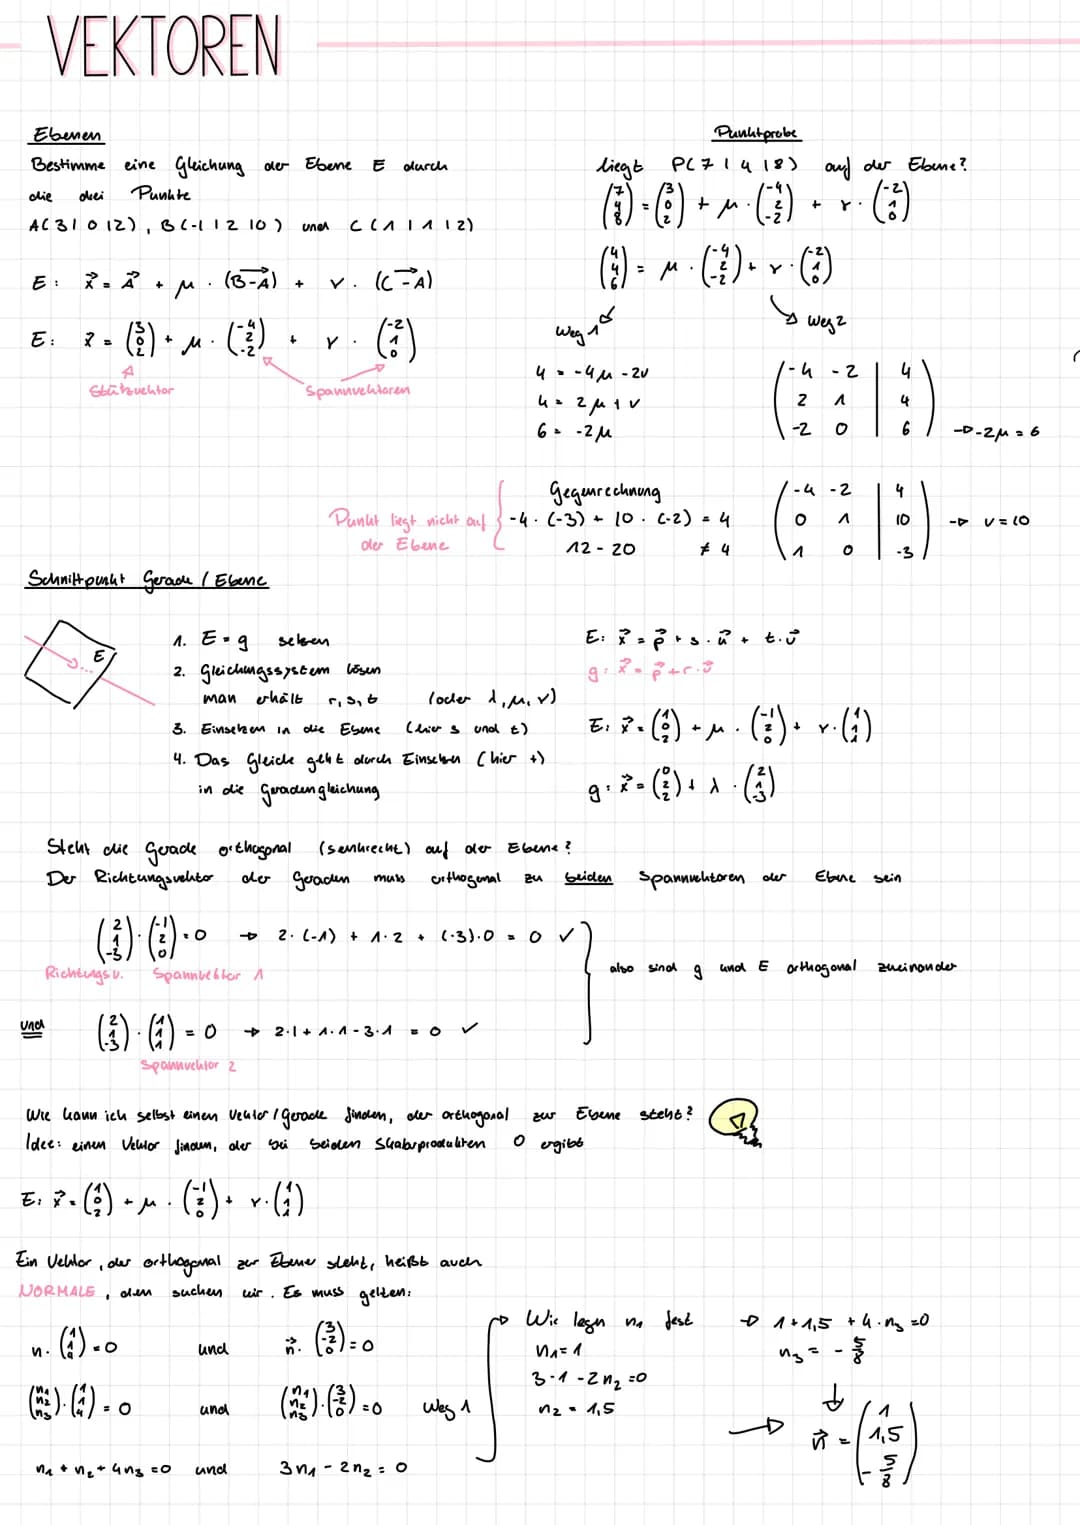 VEKTOREN
Ebenen
Bestimme eine Gleichung der Ebene E durch
die drei Punkte
A(3|0|2), B(-1|2|0) und C(1|1|2)
E: x⃗ = A⃗ + μ · (B-A) + ν · (C-A)
E: x⃗ = (3 0 2) + μ · (-4 2 -2) + ν · (-2 1 0)
Stützvektor
Spannvektoren
Punktprobe
liegt P(7|4|8) auf der Ebene?
(7 4 8) = (3 0 2) + μ · (-4 2 -2) + ν · (-2 1 0)
(4 4 6) = μ · (-4 2 -2) + ν · (-2 1 0)
Weg 1
Weg 2
4 = -4μ - 2ν
4 = 2μ + ν
6 = -2μ
(-4 -2 | 4
2 1 | 4
-2 0 | 6) → -2μ = 6
Gegenrechnung
-4 · (-3) + 10 · (-2) = 4
12 - 20 ≠ 4
Punkt liegt nicht auf
der Ebene
(-4 -2 | 4
0 1 | 10
1 0 | -3) → ν = 10
Schnittpunkt Gerade / Ebene
E
1. E = g setzen
2. Gleichungssystem lösen
man erhält r, s, t (oder λ, μ, ν)
3. Einsetzen in die Ebene (hier s und t)
4. Das Gleiche geht durch Einsetzen (hier t)
in die Geradengleichung
E: x⃗ = p⃗ + s · u⃗ + t · v⃗
g: x⃗ = p⃗ + r · v⃗
E: x⃗ = (1 0 2) + μ · (-1 2 0) + ν · (1 1 1)
g: x⃗ = (0 2 2) + λ · (2 1 -3)
Steht die Gerade orthogonal (senkrecht) auf der Ebene?
Der Richtungsvektor der Geraden muss orthogonal zu beiden Spannvektoren der Ebene sein
(2 1 -3) · (-1 2 0) = 0 → 2 · (-1) + 1 · 2 + (-3) · 0 = 0 ✓
Richtungsv. Spannvektor 1
also sind g und E orthogonal zueinander
und (2 1 -3) · (1 1 1) = 0 → 2·1 + 1·1 - 3·1 = 0 ✓
Spannvektor 2
Wie kann ich selbst einen Vektor / Gerade finden, der orthogonal zur Ebene steht?
Idee: einen Vektor finden, der bei beiden Skalarprodukten 0 ergibt
E: x⃗ = (1 0 2) + μ · (-1 2 0) + ν · (1 1 1)
Ein Vektor, der orthogonal zur Ebene steht, heißt auch
NORMALE, den suchen wir. Es muss gelten:
n · (1 1 4) = 0 und n⃗ · (3 -2 0) = 0
(n₁ n₂ n₃) · (1 1 4) = 0 und (n₁ n₂ n₃) · (3 -2 0) = 0 Weg 1
n₁ + n₂ + 4n₃ = 0 und 3n₁ - 2n₂ = 0
Wir legen n₁ fest
n₁ = 1
3 · 1 - 2n₂ = 0
n₂ = 1,5
→ 1 + 1,5 + 4 · n₃ = 0
n₃ = - 5/8
n⃗ = (1 1,5 -5/8)